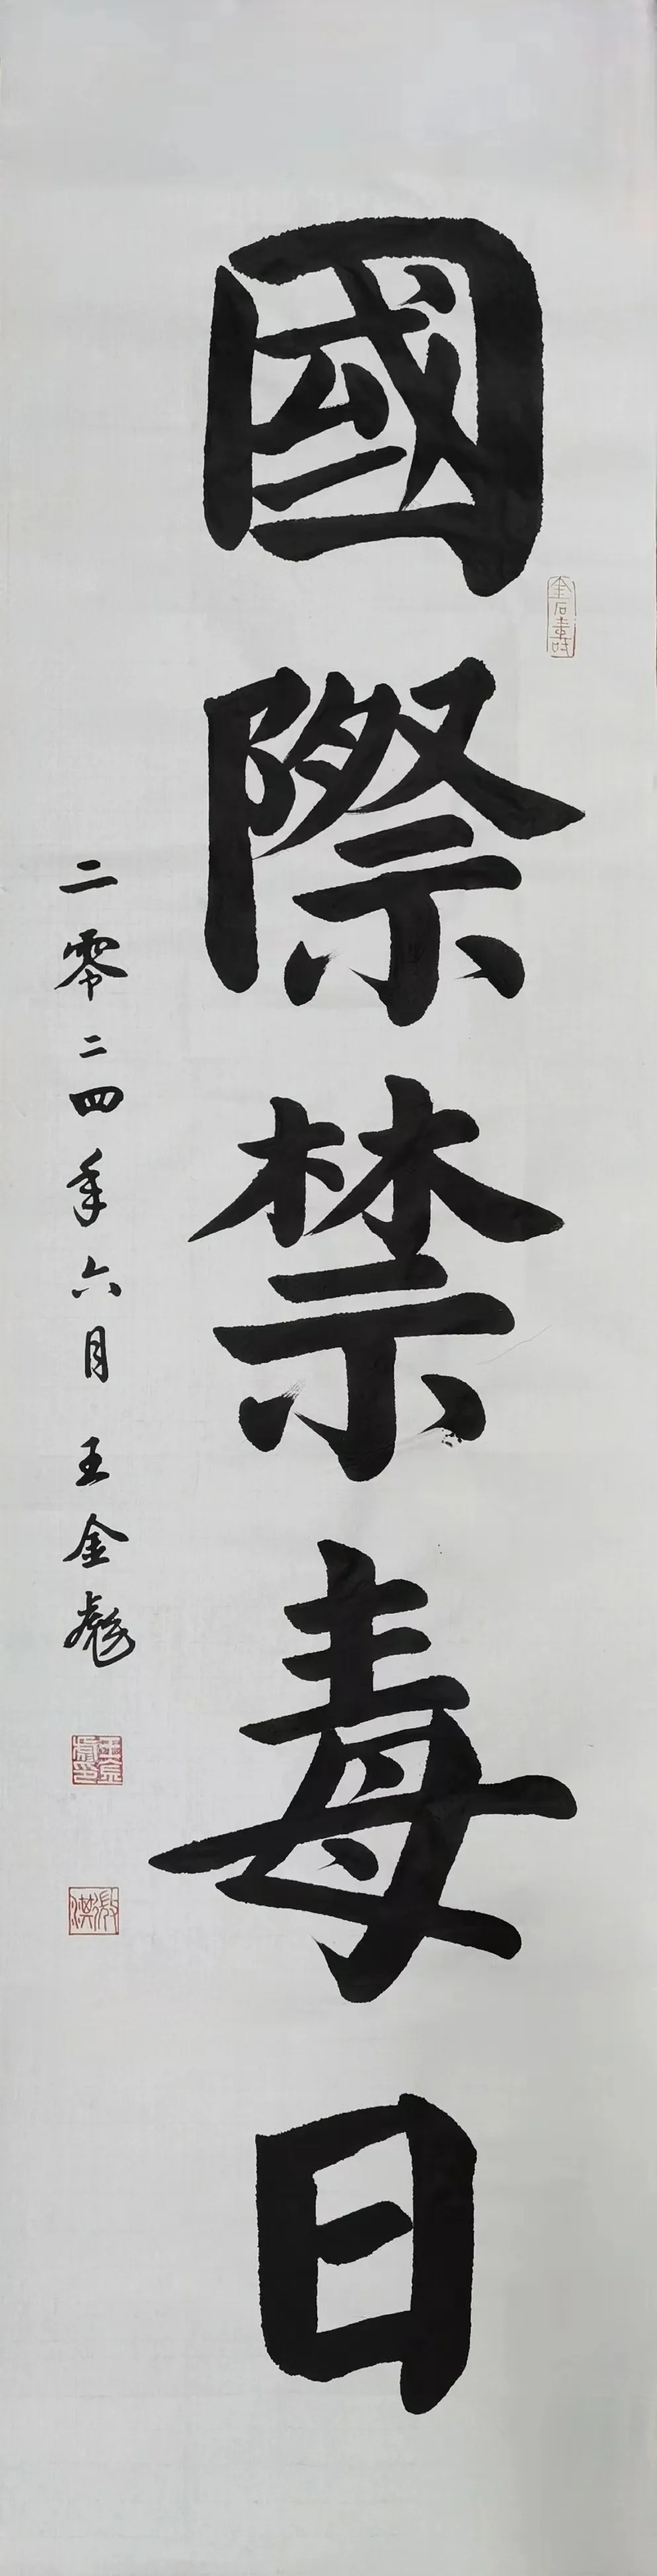 國際禁毒日
二零二四年六月 王金彪